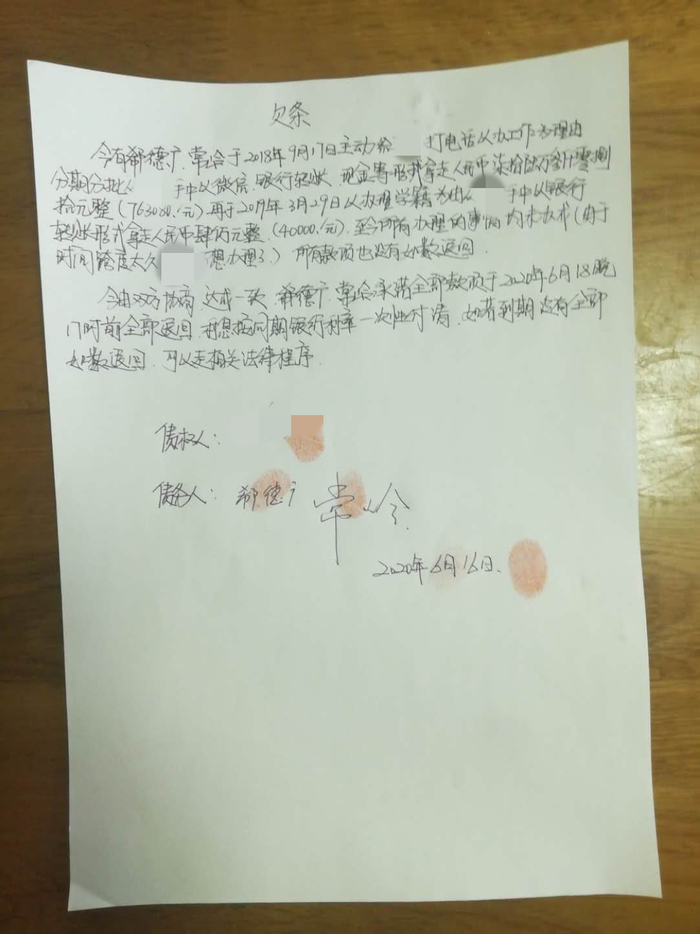 欠条
今有郗德广、常岭于2018年9月17日主动给 打电话以办工作为理由
分期分批从 手中以微信、银行转账、现金等形式拿走人民币柒拾陆万叁仟零捌
拾元整(763080.元).再于2019年3月29日以办理学籍为由从 手中以银行
转账形式拿走人民币肆万元整.(40000.元).至今所有办理的事情均未办成(由于
时间跨度太久 想办理了.)所有款项也没有如数退回.
今由双方协商,达成一致.郗德广、常岭承诺全部款项于2020年6月18晚
17时前全部退回.利息按同期银行利率一次性付清.如若到期没有全部
如数退回.可以走相关法律程序.
债权人:
债务人:郗德广 常岭
2020年6月16日.